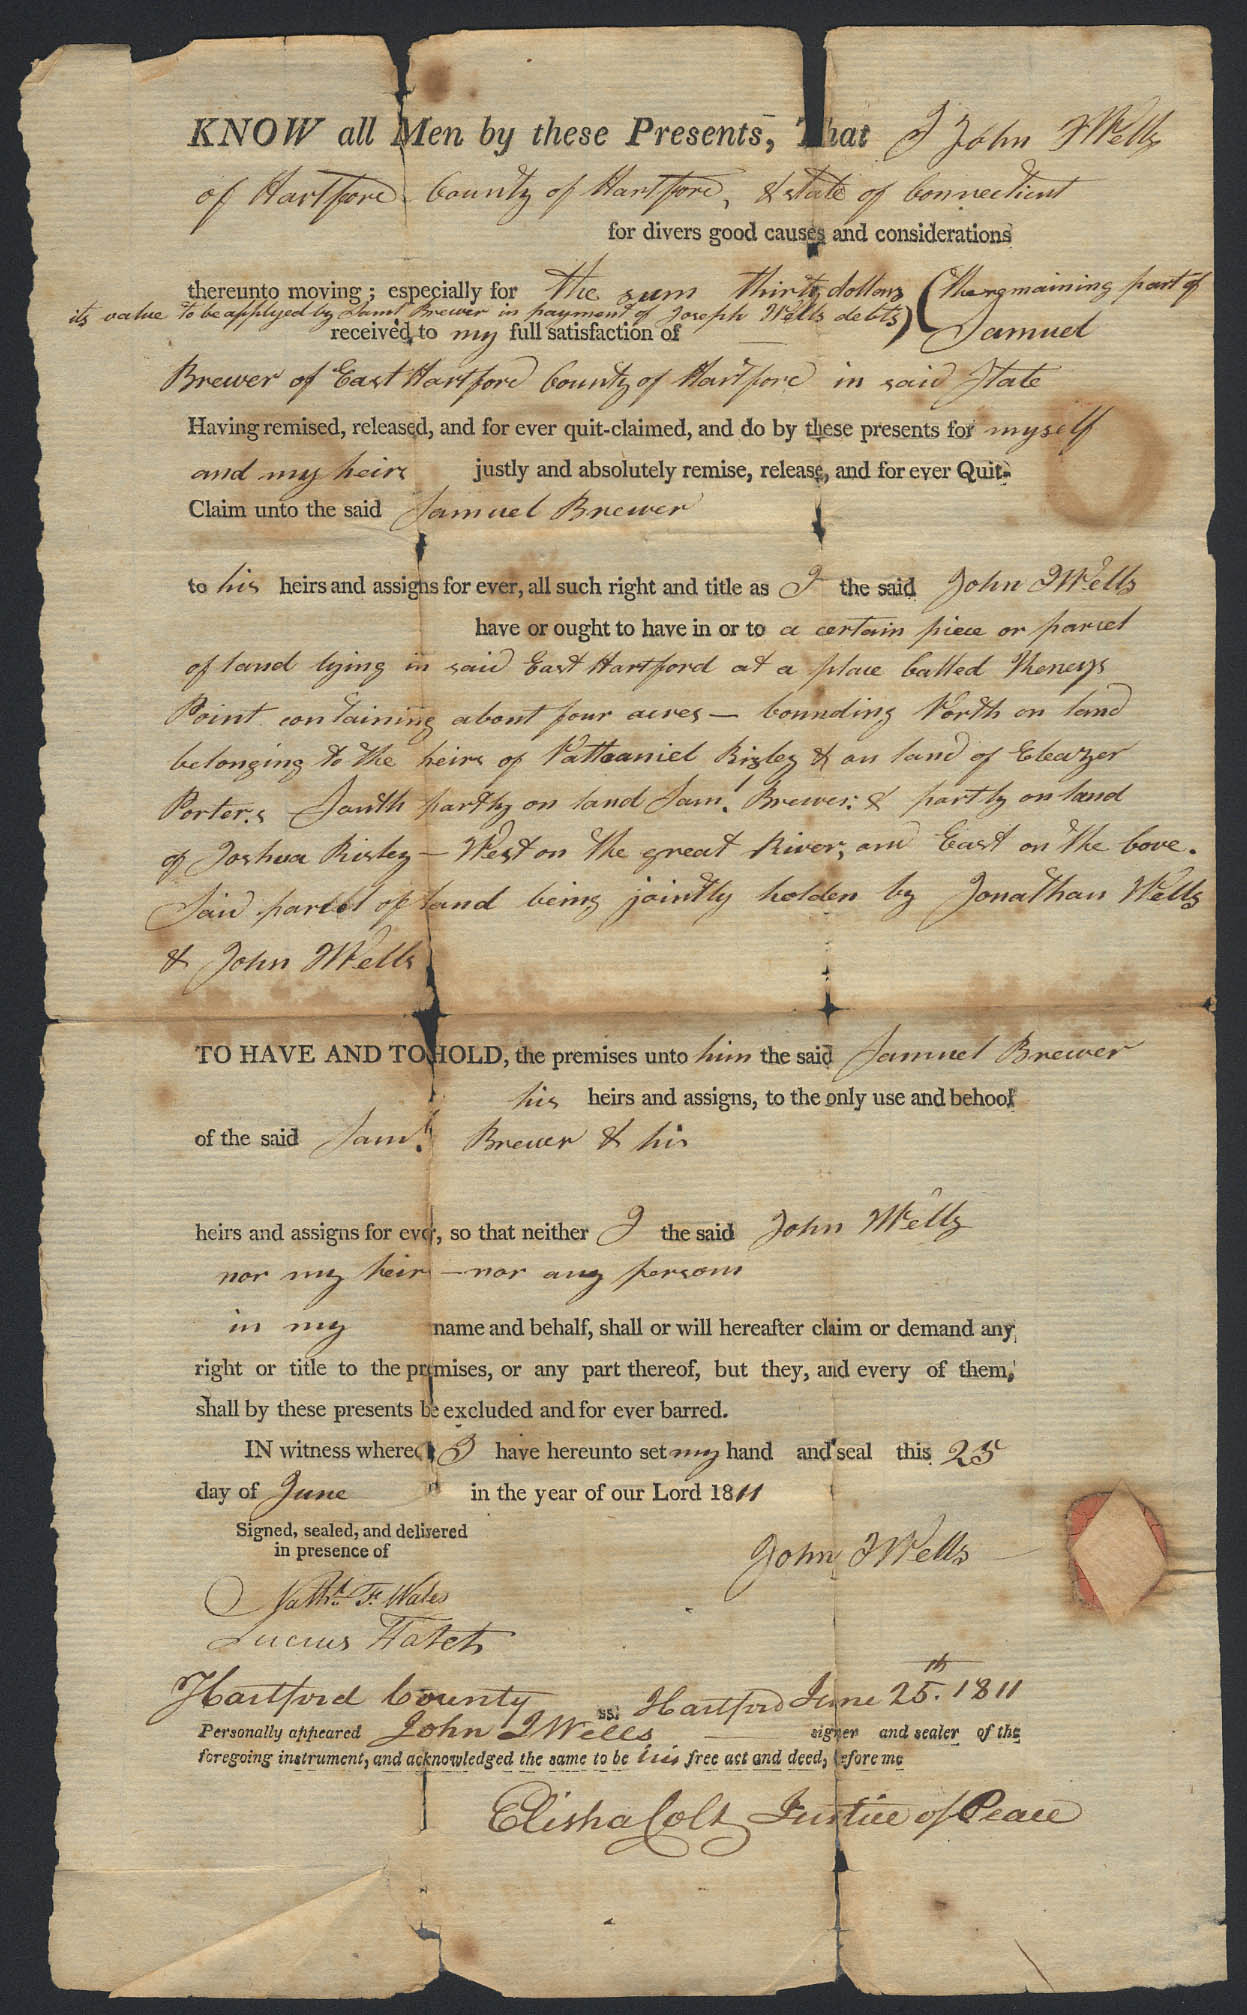 KNOW all Men by these Presents, That I John Wells
of Hartford County of Hartford, & state of Connecticut
for divers good causes and considerations
thereunto moving; especially for the sum thirty dollars (the remaining part of
its value to be applyed by Saml Brewer in payment of Joseph Wells debts)
received to my full satisfaction of Samuel
Brewer of East Hartford County of Hartford in said State
Having remised, released, and for ever quit-claimed, and do by these presents for myself
and my heirs justly and absolutely remise, release, and for ever Quit-
Claim unto the said Samuel Brewer
to his heirs and assigns for ever, all such right and title as I the said John Wells
have or ought to have in or to a certain piece or parcel
of land lying in said East Hartford at a place Called
Point containing about four acres — bounding North on land
belonging to the heirs of Nathaniel Risley & on land of Eleazer
Porter, South partly on land Saml. Brewer & partly on land
of Joshua Risley — West on the great River, and East on the Cove.
Said parcel of land being jointly holden by Jonathan Wells
& John Wells
TO HAVE AND TO HOLD, the premises unto him the said Samuel Brewer
his heirs and assigns, to the only use and behoof
of the said Saml. Brewer & his
heirs and assigns for ever, so that neither I the said John Wells
nor my heirs — nor any person
in my name and behalf, shall or will hereafter claim or demand any
right or title to the premises, or any part thereof, but they, and every of them,
shall by these presents be excluded and for ever barred.
IN witness whereof I have hereunto set my hand and seal this 25
day of June in the year of our Lord 1811
Signed, sealed, and delivered
in presence of
John Wells
Nathl. F. Wales
Lucius Hatch
Hartford County ss. Hartford June 25th. 1811
Personally appeared John Wells signer and sealer of the
foregoing instrument, and acknowledged the same to be his free act and deed, before me
Elisha Colt Justice of Peace